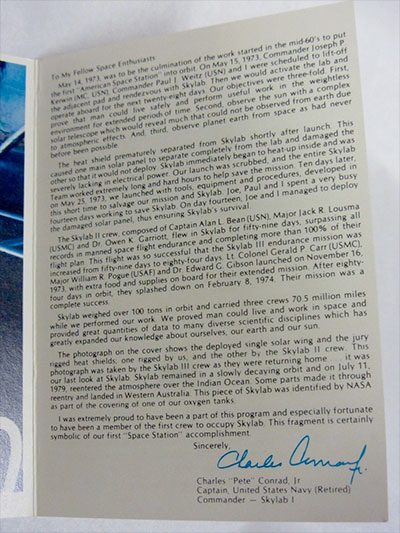 To My Fellow Space Enthusiasts
May 14, 1973, was to be the culmination of the work started in the mid-60's to put
the first "American Space Station" into orbit. On May 15, 1973, Commander Joseph P.
Kerwin (MC, USN), Commander Paul J. Weitz (USN) and I were scheduled to lift-off
the adjacent pad and rendezvous with Skylab. Then we would activate the lab and
operate aboard for the next twenty-eight days. Our objectives were three-fold. First,
prove that man could live safely and perform useful work in the weightless
environment for extended periods of time. Second, observe the sun with a complex
solar telescope which would reveal much that could not be observed from earth due
to atmospheric effects. And, third, observe planet earth from space as had never
before been possible.
The heat shield prematurely separated from Skylab shortly after launch. This
caused one main solar panel to separate completely from the lab and damaged the
other so that it would not deploy. Skylab immediately began to heat-up inside and was
severely lacking in electrical power. Our launch was scrubbed, and the entire Skylab
Team worked extremely long and hard hours to help save the mission. Ten days later,
on May 25, 1973, we launched with tools, equipment and procedures, developed in
this short time to salvage our mission and Skylab. Joe, Paul and I spent a very busy
fourteen days working to save Skylab. On day fourteen, Joe and I managed to deploy
the damaged solar panel, thus ensuring Skylab's survival.
The Skylab II crew, composed of Captain Alan L. Bean (USN), Major Jack R. Lousma
(USMC) and Dr. Owen K. Garriott, flew in Skylab for fifty-nine days, surpassing all
records in manned space flight endurance and completing more than 100% of their
flight plan. This flight was so successful that the Skylab III endurance mission was
increased from fifty-nine days to eighty-four days. Lt. Colonel Gerald P. Carr (USMC),
Major William R. Pogue (USAF) and Dr. Edward G. Gibson launched on November 16,
1973, with extra food and supplies on board for their extended mission. After eighty-
four days in orbit, they splashed down on February 8, 1974. Their mission was a
complete success.
Skylab weighed over 100 tons in orbit and carried three crews 70.5 million miles
while we performed our work. We proved man could live and work in space and
provided great quantities of data to many diverse scientific disciplines which has
greatly expanded our knowledge about ourselves, our earth and our sun.
The photograph on the cover shows the deployed single solar wing and the jury
rigged heat shields, one rigged by us, and the other by the Skylab II crew. This
photograph was taken by the Skylab III crew as they were returning home . . . it was
our last look at Skylab. Skylab remained in a slowly decaying orbit and on July 11,
1979, reentered the atmosphere over the Indian Ocean. Some parts made it through
reentry and landed in Western Australia. This piece of Skylab was identified by NASA
as part of the covering of one of our oxygen tanks.
I was extremely proud to have been a part of this program and especially fortunate
to have been a member of the first crew to occupy Skylab. This fragment is certainly
symbolic of our first "Space Station" accomplishment.
Sincerely,
Charles Conrad Jr.
Charles "Pete" Conrad, Jr
Captain, United States Navy (Retired)
Commander — Skylab I